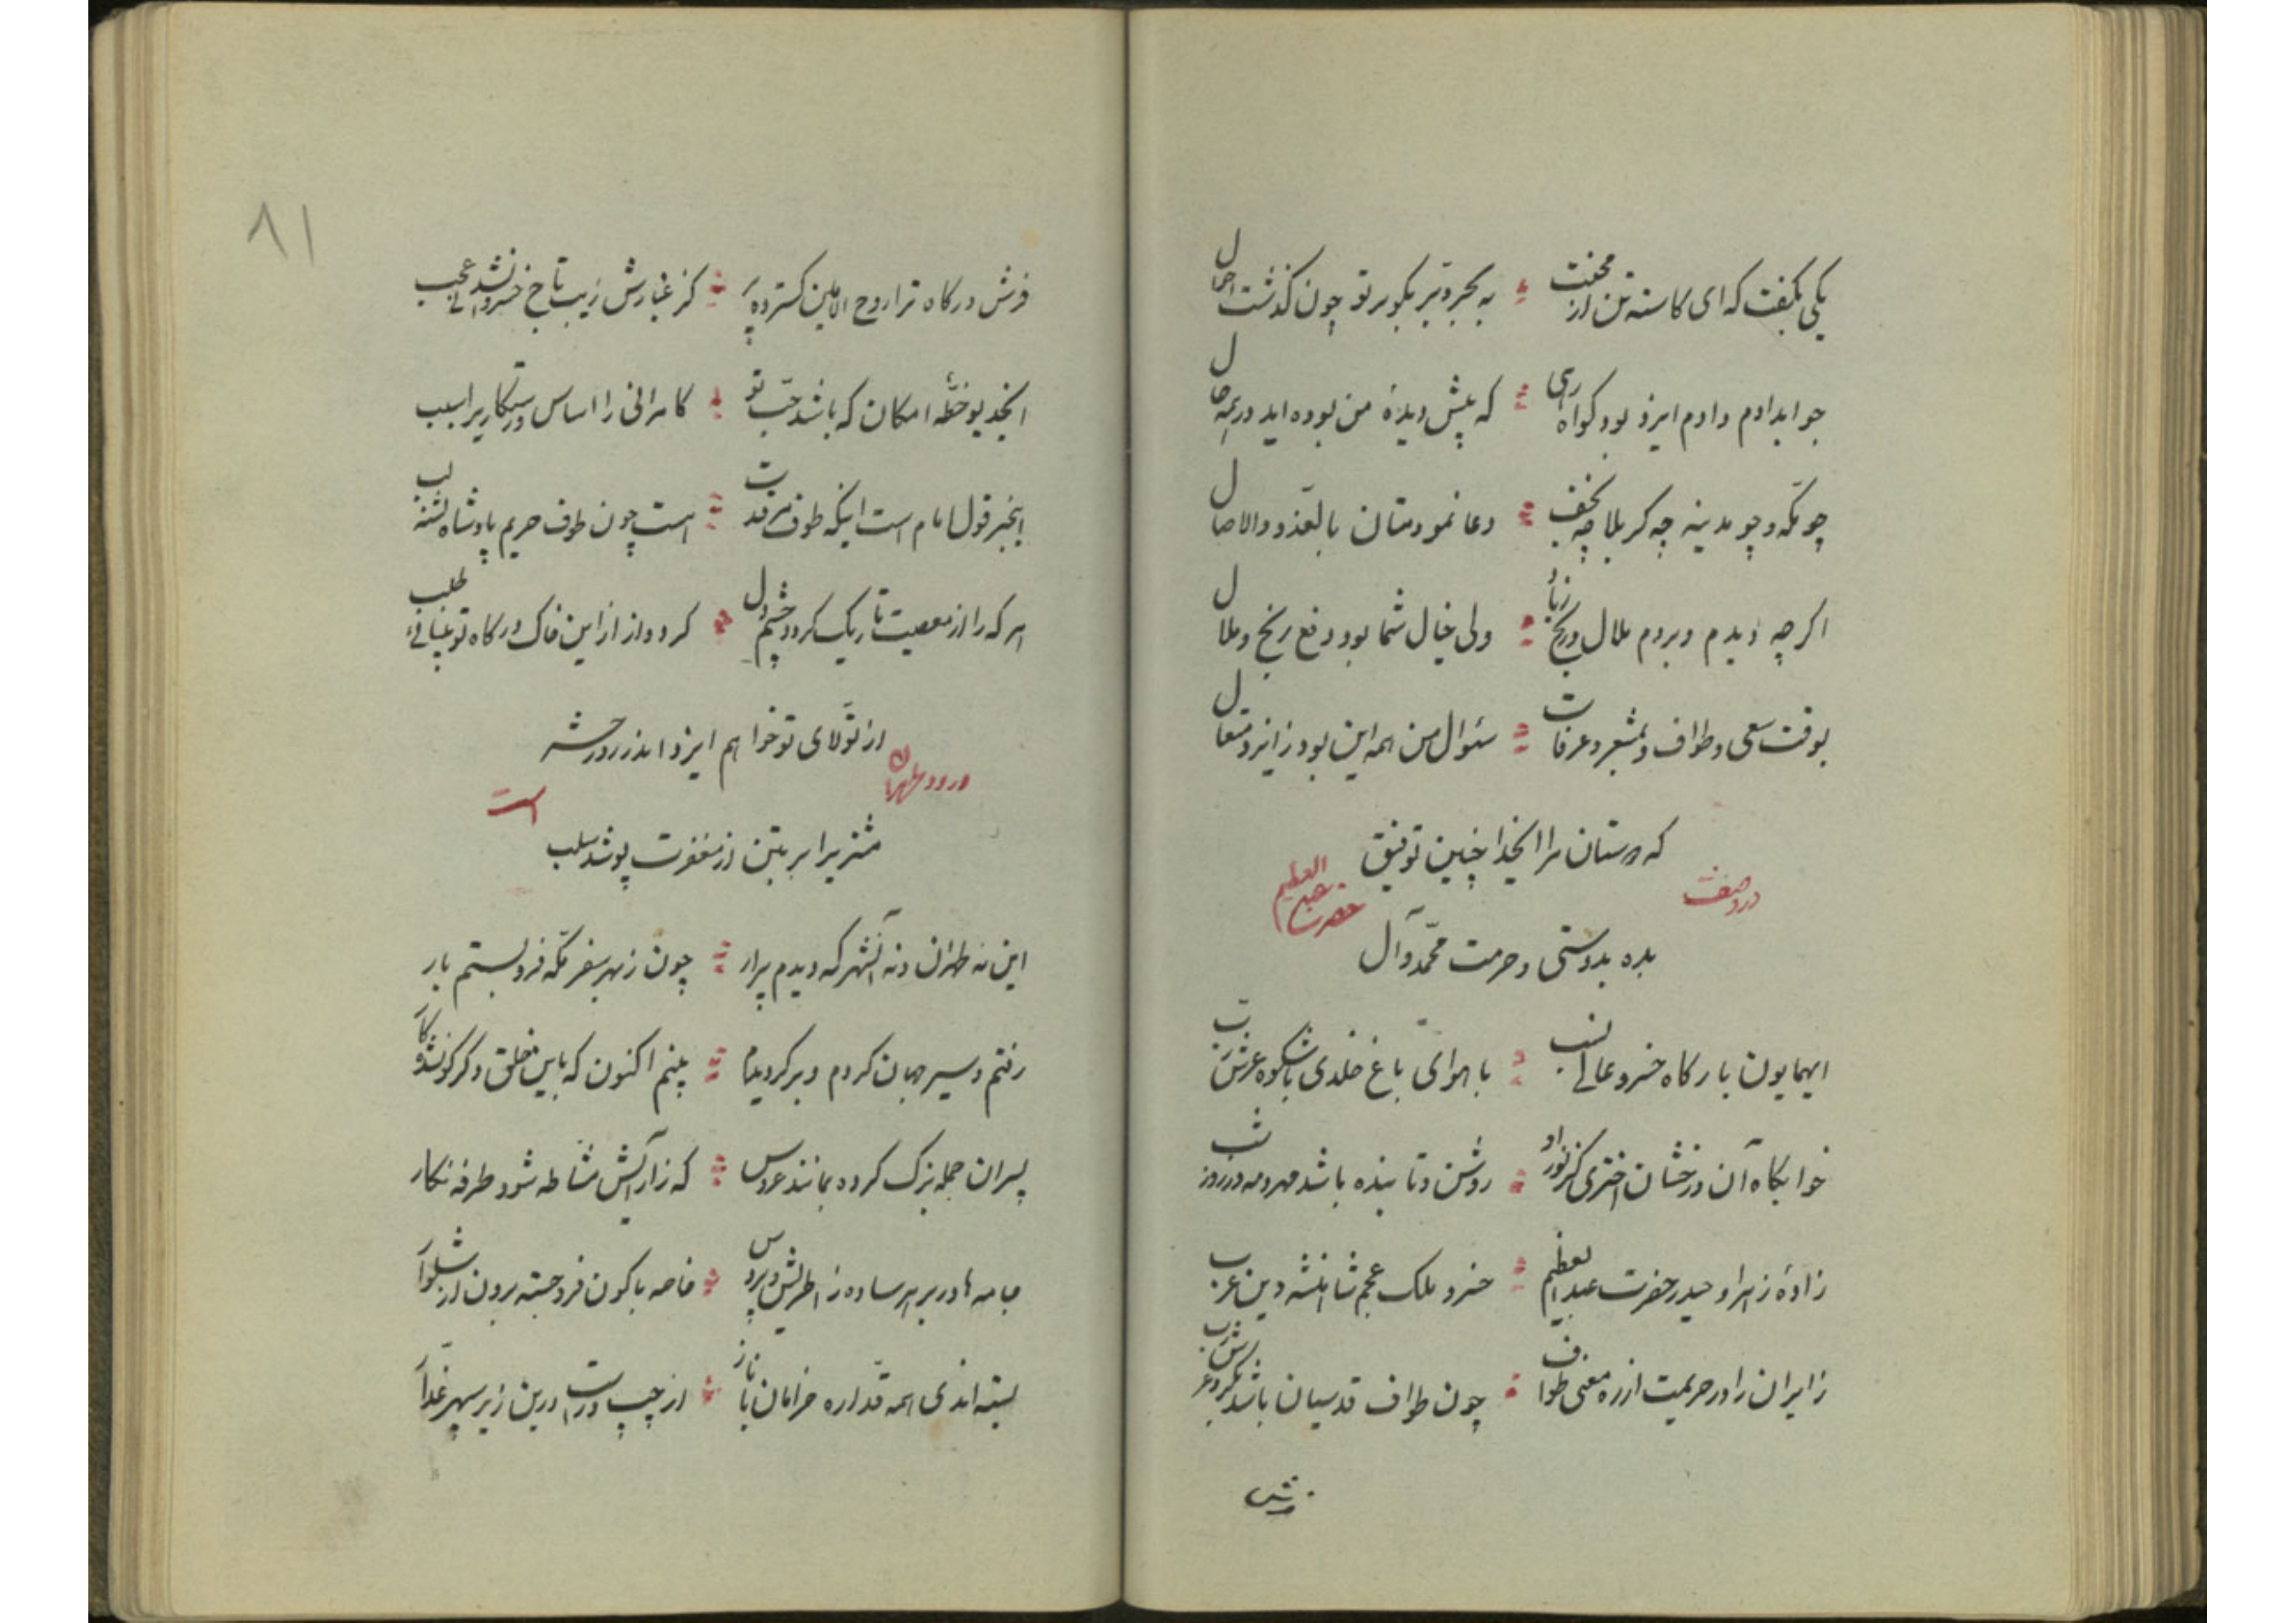 یکی بگفت که ای کاسته تن از محنت ؛ به بحر و بر بگو بر تو چون گذشت احوال
جوابدادم و ادم ایزد بود گواه ؛ که پیش دیدهٔ من بوده اید در همه حال
چو مکه و چو مدینه چه کربلا چه نجف ؛ دعا نمودمتان بالغدو والاصال
اگر چه دیدم و بردم ملال و رنج زیاد ؛ ولی خیال شما بود دفع رنج و ملال
بوقت سعی و طواف و بمشعر و عرفات ؛ سئوال من همه این بود زایزد متعال
که دوستان مرا ایخدا چنین توفیق
در وصف حضرت عبدالعظیم
بده بدوستی و حرمت محمّد و آل
ایهمایون بارگاه خسرو عالی نسب ؛ با هوای باغ خلدی با شکوه عرش رب
خوابگاه آن درخشان اختری کز نور او ؛ روشن و تابنده باشد مهر و مه در روز شب
زادهٔ زهرا و حیدر حضرت عبدالعظیم ؛ خسرو ملک عجم شاهنشه دین عرب
زایران را در حریمت از ره معنی طواف ؛ چون طواف قدسیان باشد بگرد عرش رب
فرش
۸۱
فرش درگاه ترا روح الامین گسترده پر ؛ کز غبارش زیب تاج خسروانی نشد عجب
ایخدیو خطّه امکان که باشد حبّ تو ؛ کامرانی را اساس و رستگاریرا سبب
اینخبر قول امام است اینکه طوف مرقدت ؛ هست چون طوف حریم پادشاه تشنه لب
هر که را از معصیت تاریک گردد چشم دل ؛ گردد از این خاک درگاه تو بینائی طلب
از تولّای تو خواهم ایزد اندر روز حشر
ورود طهران است
مشتریرا بر بتن از مغفرت پوشد سلب
این نه طهران و نه آنشهر که دیدم پرار ؛ چون ز بهر سفر مکّه فرو بستم بار
رفتم و سیر جهان کردم و برگردیدم ؛ بینم اکنون که باین خلق دگرگون شد کار
پسران جمله بزک کرده بمانند عروس ؛ که زارایش مشاطه شود طرفه نگار
جامه ها در بر هر ساده ز اطریش و پروس ؛ خاصه با کون فرو جسته برون از شلوار
بسته اندی همه قدّاره خرامان با ناز ؛ از چپ و راست درین زیر سپهر غدّار